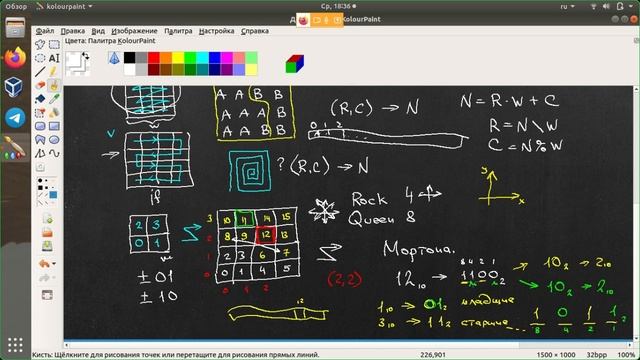 Обзор
kolourpaint
Ср, 18:36
ru
KolourPaint
Файл Правка Вид Изображение Палитра Настройка Справка
Цвета: Палитра KolourPaint
Инструменты
A A B B
A B B B
A A A B
(R,C) → N
N = R·W + C
R = N \ W
C = N % W
0 1 2
w
v
if
? (R,C) → N
Rock 4
Queen 8
y
x
2 3
0 1
± 01
± 10
3 10 11 14 15
2 8 9 12 13
1 2 3 6 7
0 0 1 4 5
0 1 2
(2,2)
12
Мортона.
8 4 2 1
12₁₀ → 1100₂
→ 10₂ → 2₁₀
→ 10₂ → 2₁₀
1₁₀ → 01₂ младшие
3₁₀ → 11₂ старшие
1 0 1 1
8 4 2 1
Кисть: Щёлкните для рисования точек или перетащите для рисования прямых линий.
226,901
32bpp
100%